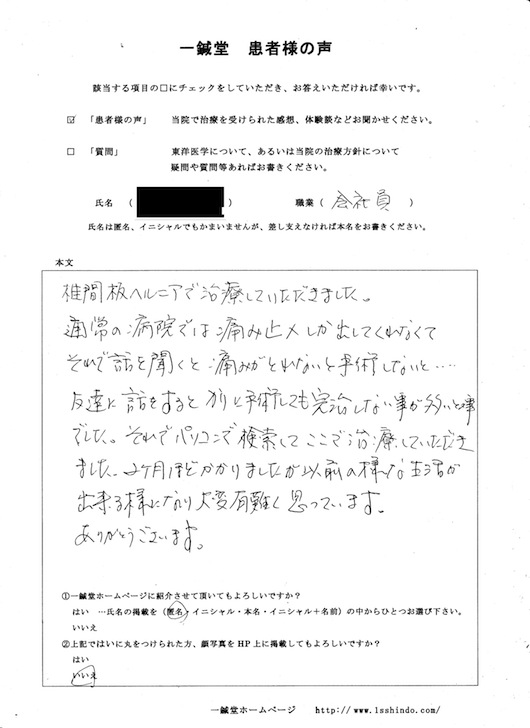 一鍼堂 患者様の声
該当する項目の□にチェックをしていただき、お答えいただければ幸いです。
☑ 「患者様の声」 当院で治療を受けられた感想、体験談などお聞かせください。
□ 「質問」 東洋医学について、あるいは当院の治療方針について
疑問や質問等あればお書きください。
氏名 ( ) 職業 ( 会社員 )
氏名は匿名、イニシャルでもかまいませんが、差し支えなければ本名をお書きください。
本文
椎間板ヘルニアで治療していただきました。
通常の病院では痛み止メしか出してくれなくて
それで話を聞くと痛みがとれないと手術しないと…
友達に話をすると別に手術しても完治しない事が多いと事
でした。それでパソコンで検索してここで治療していただき
ました。2ヶ月ほどかかりましたが以前の様な生活が
出来る様になり大変有難く思っています。
ありがとうございます。
①一鍼堂ホームページに紹介させて頂いてもよろしいですか?
はい …氏名の掲載を(匿名・イニシャル・本名・イニシャル+名前)の中からひとつお選び下さい。
いいえ
②上記ではいに丸をつけられた方、顔写真をHP上に掲載してもよろしいですか?
はい
いいえ
一鍼堂ホームページ http://www.1sshindo.com/